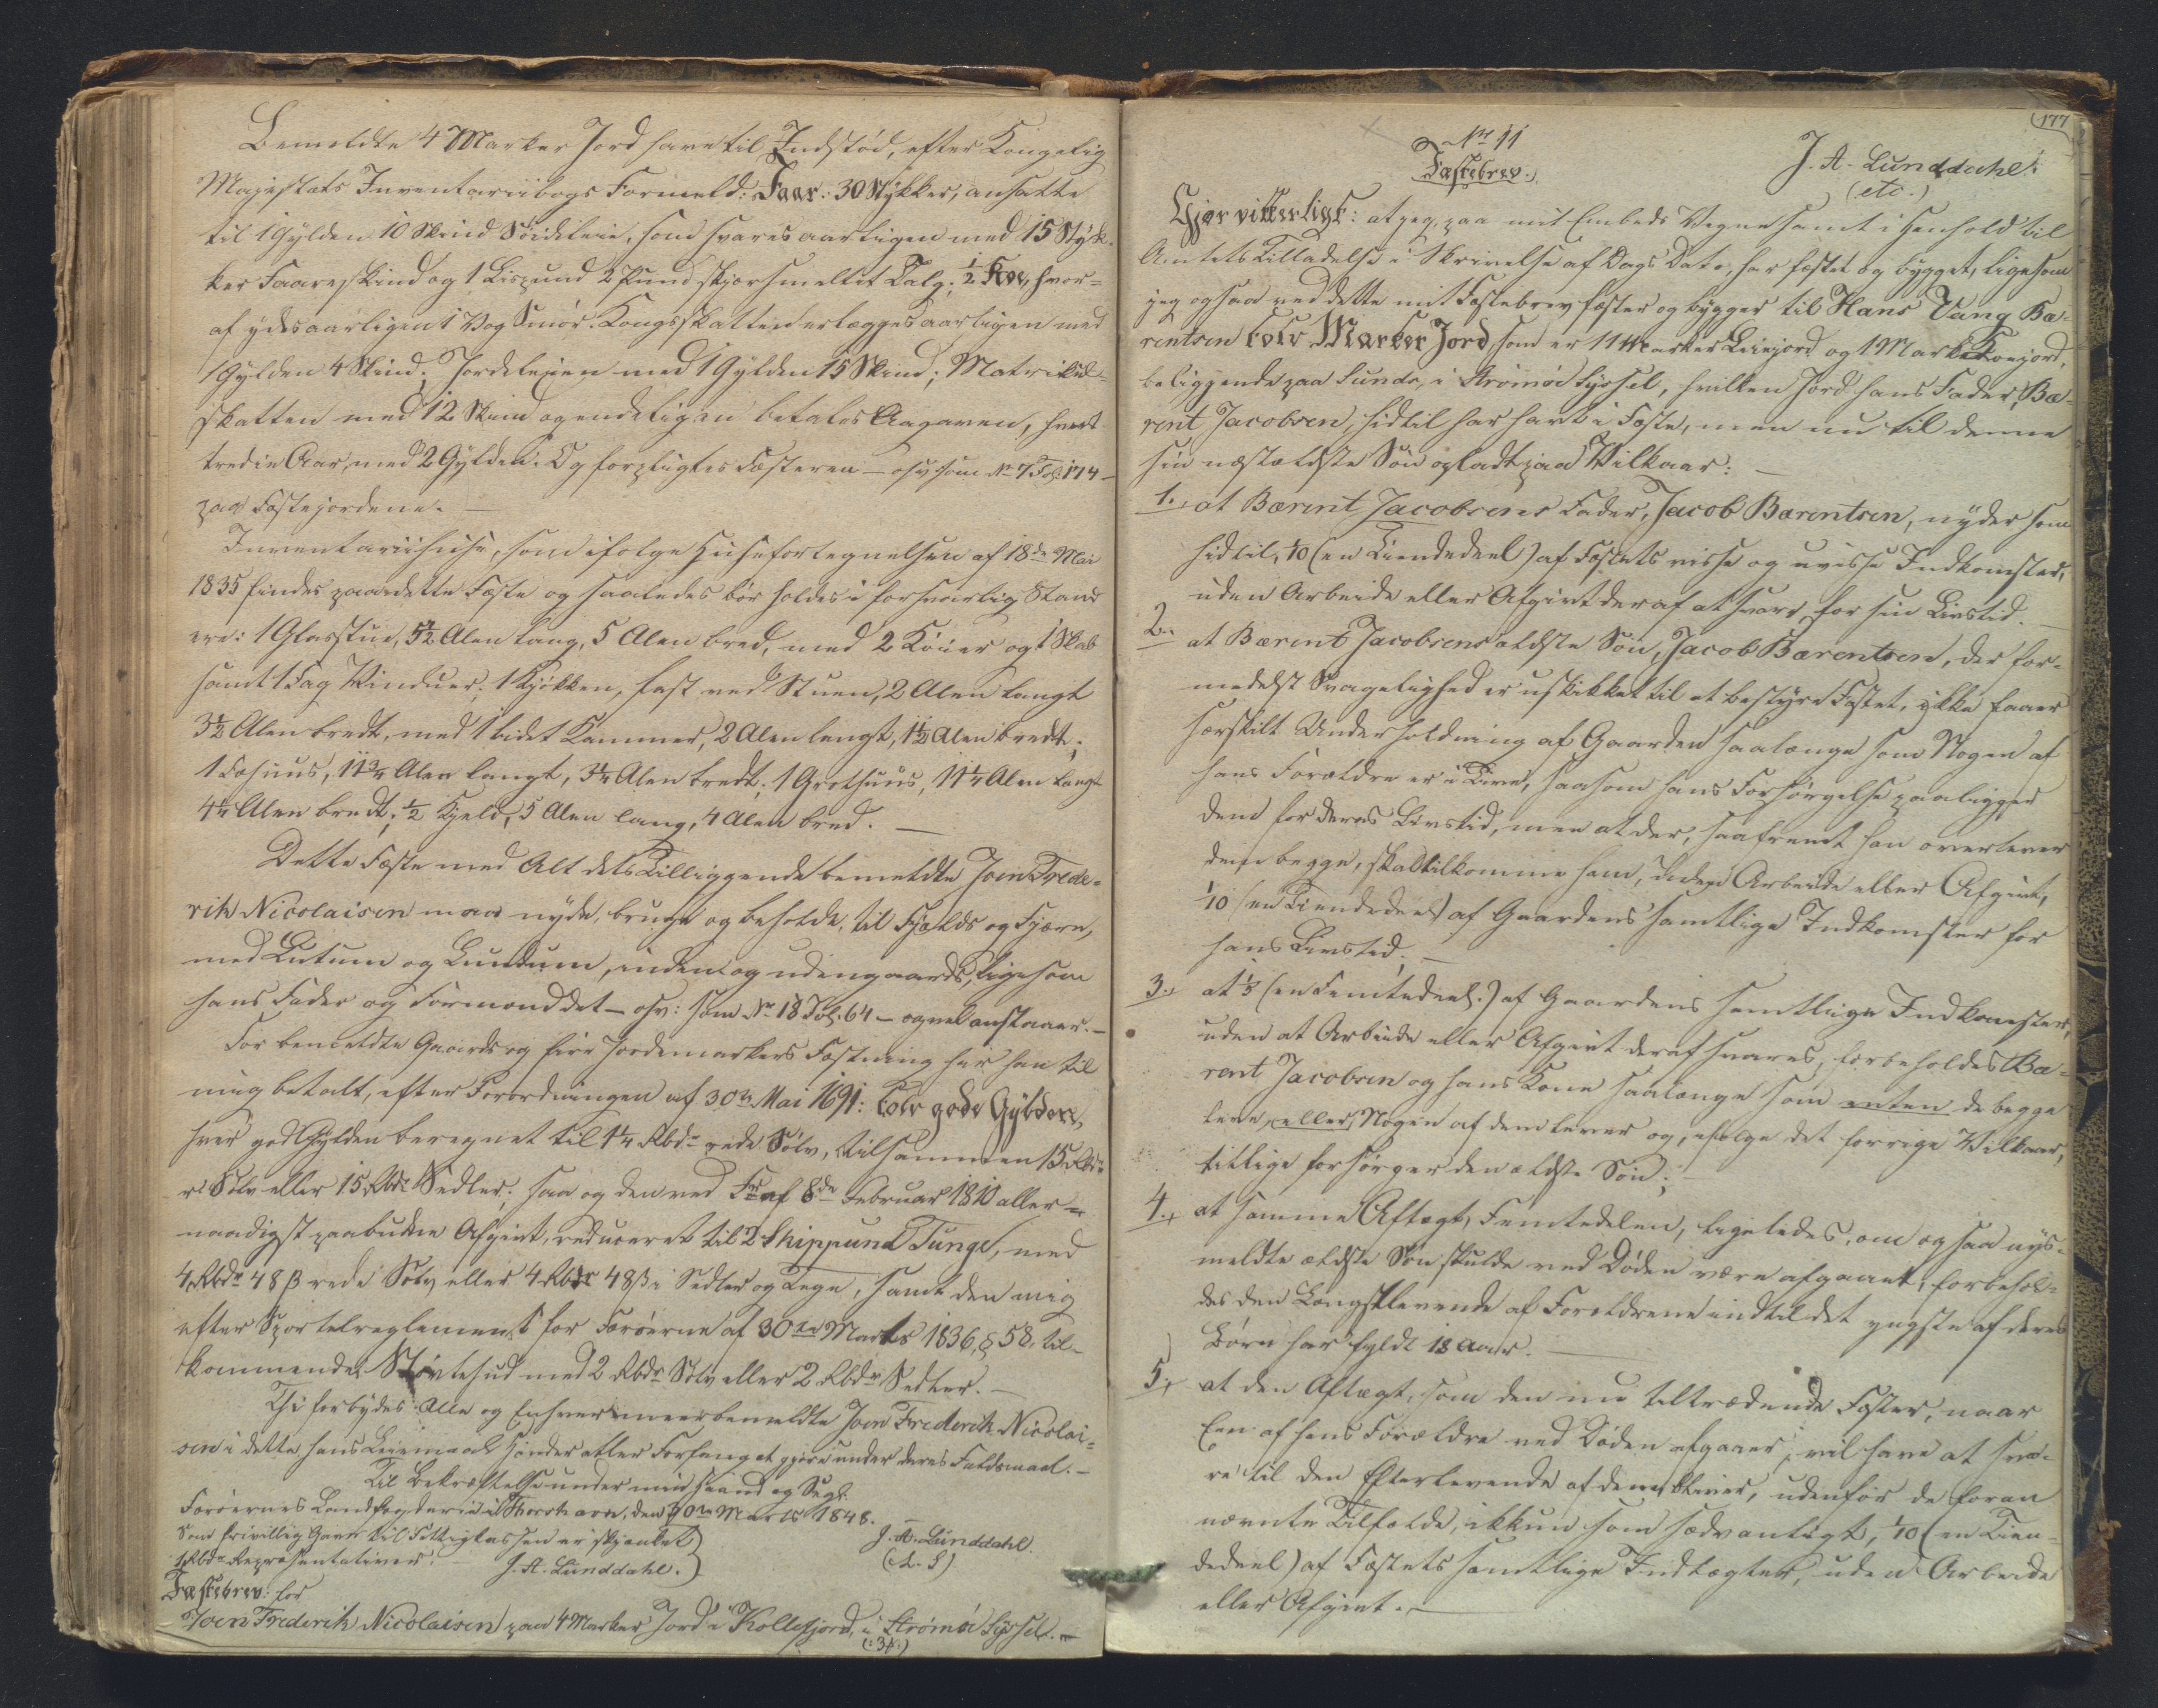 Bemeldte 4 Marker Jord have til Indstød, efter Kongelig
Majestæts Inventariibogs Formeld: Faar: 30 Stykker, ansatte
til 1 Gylden 10 Skind Søideleie, som svares aarligen med 15 Styk-
ker Faareskind og 1 Lispund 2 Pund skjørsmeltet Talg; ½ Koe, hvor-
af ydes aarligen 1 Vog Smør. Kongsskatten erlægges aarligen med
1 Gylden 4 Skind; Jordeleien med 1 Gylden 15 Skind; Matrikul-
skatten med 12 Skind og endeligen betales Aagaven, hvert
tredie Aar, med 2 Gylden. Og forpligtes Fæsteren – osv: som No 7. Fol. 174 –
paa Fæstejordene. –
Inventariihuse, som ifølge Husefortegnelsen af 18de Mai
1835 findes paa dette Fæste og saaledes bør holdes i forsvarlig Stand
ere: 1 Glasstue, 5½ Alen lang, 5 Alen bred, med 2 Køier og 1 Skab
samt 1 Fag Vinduer; 1 Kjøkken, fast ved Stuen, 2 Alen langt
3½ Alen bredt, med 1 lidet Kammer, 2 Alen langt, 1½ Alen bredt;
1 Fæhuus, 11¾ Alen langt, 3¼ Alen bredt; 1 Grothuus, 11¼ Alen langt
4¼ Alen bredt; ½ Hjeld, 5 Alen lang, 4 Alen bred. –
Dette Fæste med Alt dets Tilliggende bemeldte Joen Frede-
rik Nicolaisen maa nyde, bruge og beholde, til Fjelds og Fjære,
med Lutum og Lundum, inden og udengaards, ligesom
hans Fader og Formand det – osv: som No 18 Fol. 64 – ogvel anstaaer. –
For bemeldte Gaards og fire Jordemarkers Fæstning har han til
mig betalt, efter Forordningen af 30te Mai 1691: tolv gode Gylden,
hver god Gylden beregnet til 1¼ Rbdr rede Sølv, tilsammen 15 Rbdr
r. Sølv eller 15 Rbdr Sedler; saa og den ved Fr. af 8de Februar 1810 aller-
naadigst paabudne Afgivt, reduceret til 2 Skippund Tunge, med
4 Rbdr 48 ß rede Sølv eller 4 Rbdr 48 ß i Sedler og Tegn, samt den mig
efter Sportelreglement for Færøerne af 30te Marts 1836, § 58, til-
kommende Støvlehud med 2 Rbdr Sølv eller 2 Rbdr Sedler. –
Thi forbydes Alle og Enhver meerbemeldte Joen Frederik Nicolai-
sen i dette hans Leiemaal Hinder eller Forfang at gjøre under deres Faldsmaal. –
Til Bekræftelse under min Haand og Segl.
Færøernes Landfogderie i Thorshavn, den 30te Marts 1848.
Som frivillig Gave til Fattigkassen er skjenket
1 Rbdr Repræsentativer. –
J. A. Lunddahl.
J. A. Lunddahl.
(L. S)
Fæstebrev: for
Joen Frederik Nicolaisen paa 4 Marker Jord i Kollefjord, i Strømøe Syssel. –
177
No 11
Fæstebrev.
J. A. Lunddahl:
(etc.)
Gjør vitterligt: at jeg, paa mit Embeds Vegne samt i Henhold til
Amtets Tilladelse i Skrivelse af Dags Dato, har fæstet og bygget, ligesom
jeg ogsaa ved dette mit Fæstebrev fæster og bygger til Hans Vang Bæ-
rentsen tolv Marker Jord som er 11 Marker Leiejord og 1 Mark Konejord,
beliggende paa Sunde, i Strømøe Syssel, hvilken Jord hans Fader, Bæ-
rent Jacobsen, hidtil har havt i Fæste, men nu til denne
sin næstældste Søn opladt paa Vilkaar: –
1. at Bærent Jacobsens Fader, Jacob Bærentsen, nyder som
hidtil, 1/10 (en Tiendedeel) af Fæstets visse og uvisse Indkomster,
uden Arbeide eller Afgivt deraf at svare, for sin Livstid. –
2. at Bærent Jacobsens ældste Søn, Jacob Bærentsen, der for-
medelst Svagelighed er uskikket til at bestyre Fæstet, ikke faaer
særskilt Underholdning af Gaarden saalænge som Nogen af
hans Forældre er i Live, saasom hans Forsørgelse paaligger
dem for deres Livstid, men at der, saafremt han overlever
dem begge, skal tilkomme ham, uden Arbeide eller Afgivt,
1/10 (en Tiendedeel) af Gaardens samtlige Indkomster for
hans Livstid; –
3. at 1/5 (en Femtedeel.) af Gaardens samtlige Indkomster,
uden at Arbeide eller Afgivt deraf svares, forbeholdes Bæ-
rent Jacobsen og hans Kone saalænge som enten de begge
leve, eller Nogen af dem lever og, ifølge det forrige Vilkaar,
tillige forsørger den ældste Søn; –
4. at samme Aftægt, Femtedelen, ligeledes, om ogsaa nys-
meldte ældste Søn skulde ved Døden være afgaaet, forbehol-
des den Længstlevende af Forældrene indtil det yngste af deres
Børn har fyldt 18 Aar. –
5. at den Aftægt, som den nu tiltrædende Fæster, naar
Een af hans Forældre ved Døden afgaaer, vil have at sva-
re til den Efterlevende af dem bliver, udenfor de foran
nævnte Tilfælde, ikkun som sædvanligt, 1/10 (en Tien-
dedeel) af Fæstets samtlige Indtægter, uden Arbeide
eller Afgivt. –